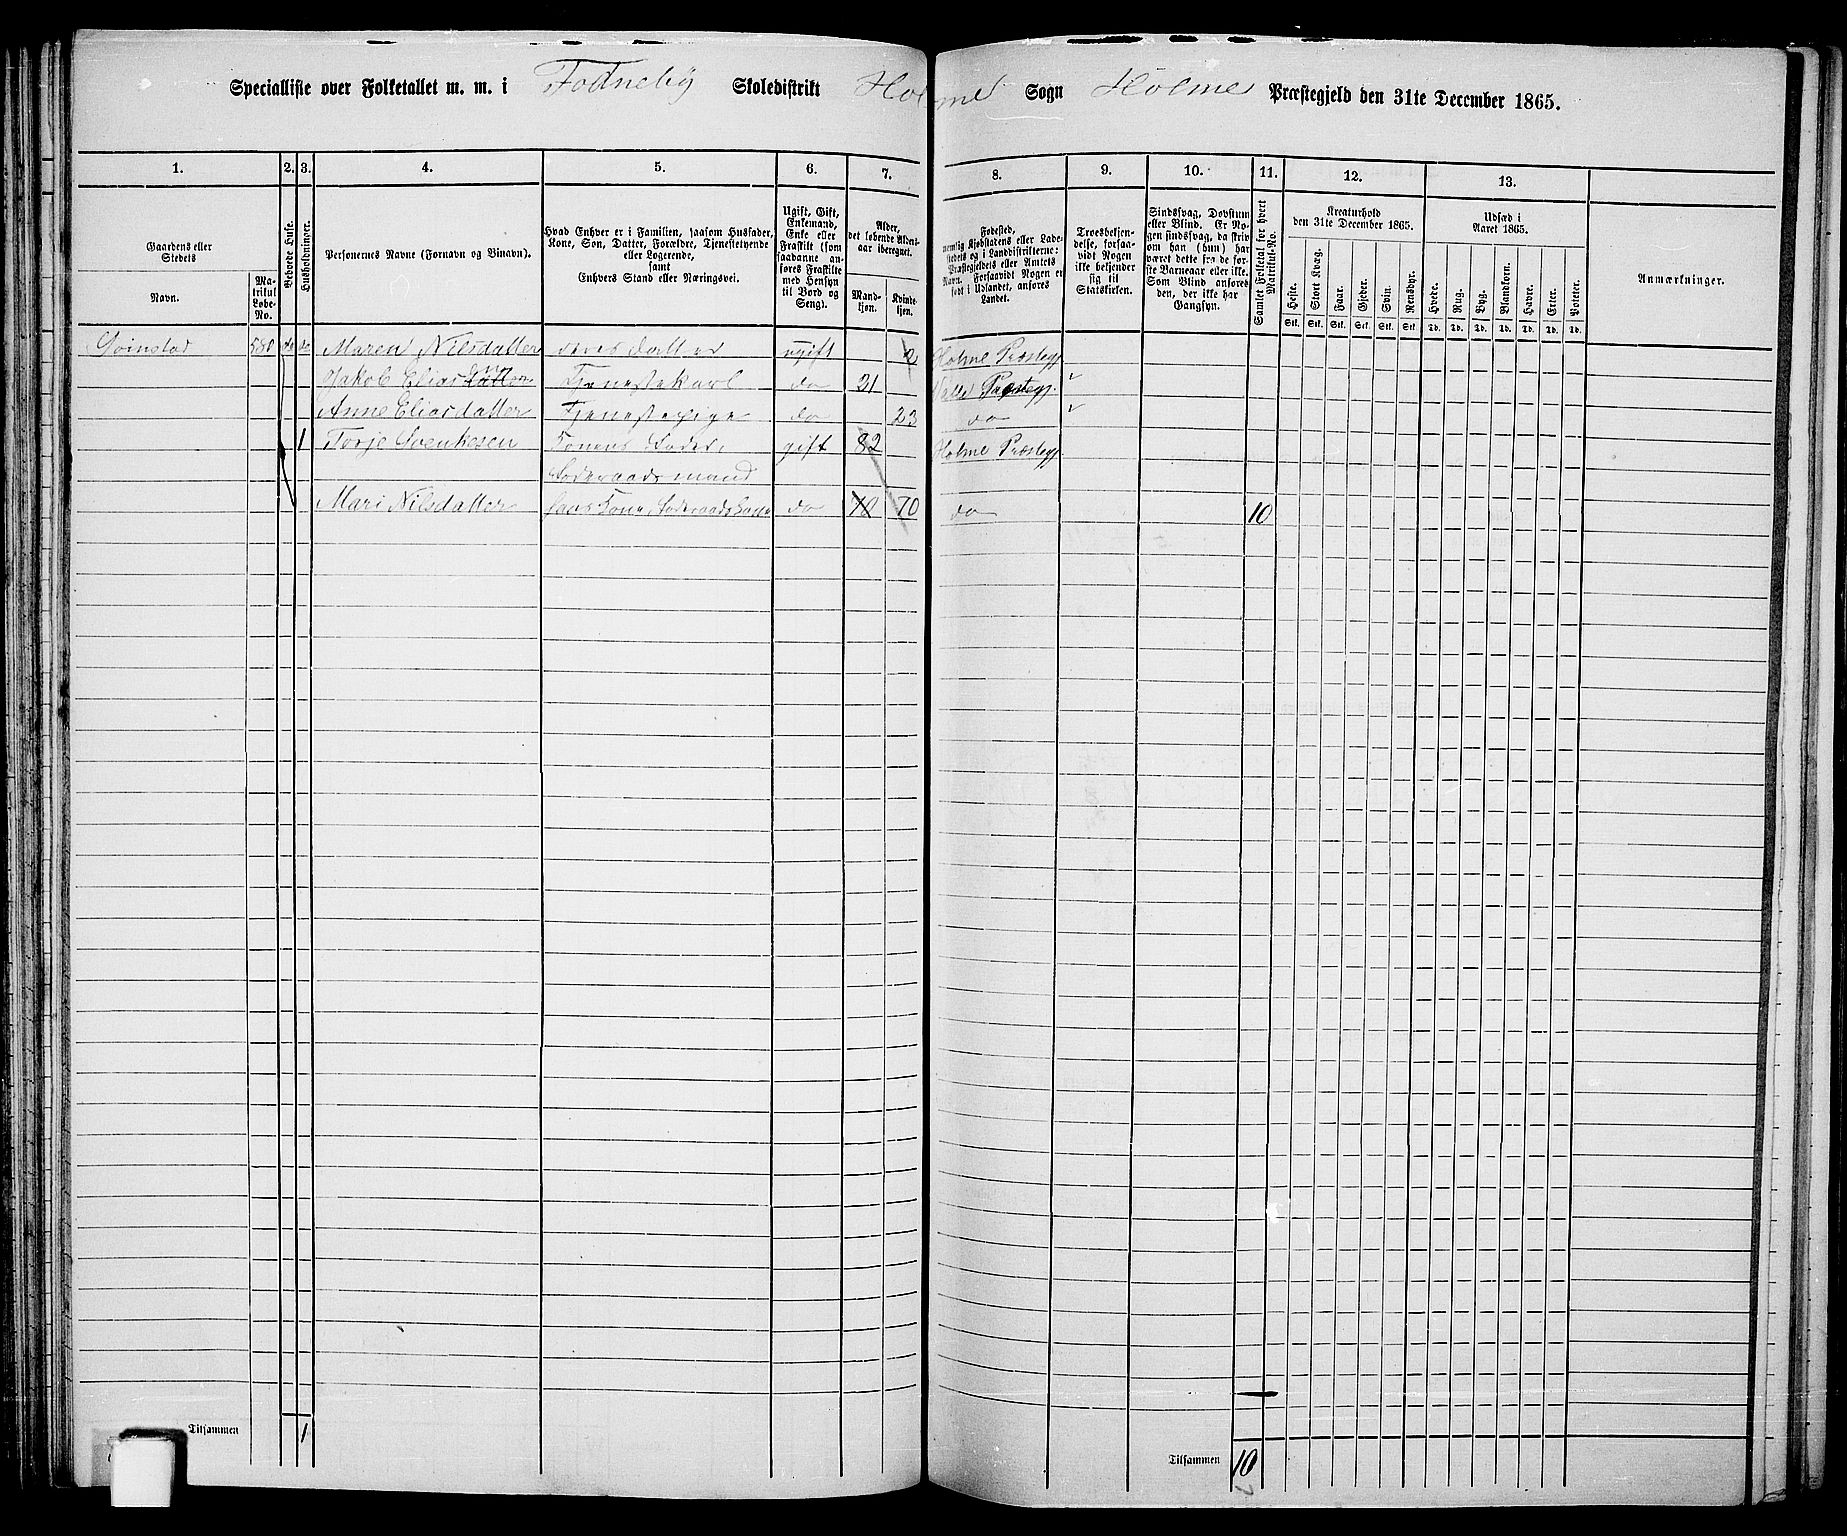 Specialliste over Folketallet m. m. i Fodneby Skoledistrikt Holme Sogn Holme Præstegjeld den 31te December 1865.
1. 2. 3. 4. 5. 6. 7. 8. 9. 10. 11. 12. 13.
Gaardens eller Stedets
Navn.
Matrikul Løbe-No.
Beboede Huse.
Husholdninger.
Personernes Navne (Fornavn og Binavn).
Hvad Enhver er i Familien, saasom Husfader, Kone, Søn, Datter, Forældre, Tjenestetyende eller Logerende, samt Enhvers Stand eller Næringsvei.
Ugift, Gift, Enkemand, Enke eller Fraskilt (som saadanne anføres Fraskilte med Hensyn til Bord og Seng).
Alder, det løbende Aldersaar iberegnet.
Mandkjøn.
Kvindekjøn.
Fødested, nemlig Kjøbstadens eller Ladestedets og i Landdistrikterne: Præstegjeldets eller Amtets Navn. Forsaavidt Nogen er født i Udlandet, anføres Landet.
Troesbekjendelse, forsaavidt Nogen ikke bekjender sig til Statskirken.
Sindssvag, Døvstum eller Blind. Er Nogen sindssvag, da skriv om han (hun) har været dette fra de første Barneaar eller ikke. Som Blind anføres den, der ikke har Gangsyn.
Samlet Folketal for hvert Matrikul-No.
Kreaturhold den 31te December 1865.
Heste. Stort Kvæg. Faar. Gjeder. Svin. Rensdyr.
Stk. Stk. Stk. Stk. Stk. Stk.
Udsæd i Aaret 1865.
Hvede. Rug. Byg. Blandkorn. Havre. Erter. Poteter.
Td. Td. Td. Td. Td. Td. Td.
Anmærkninger.
580 do do Maren Nilsdatter deres Datter ugift 2 Holme Præstegj.
Jakob Elias Tjenestekarl do 21 Præstegj.
Anne Eliasdatter Tjenestepige do 23 do
1 Torje Svenkesen Konens Fader, gift 82 Holme Præstegj.
Føderaadsmand
Mari Nilsdatter hans Kone, do 70 70 do 10
Tilsammen 1
Tilsammen 10